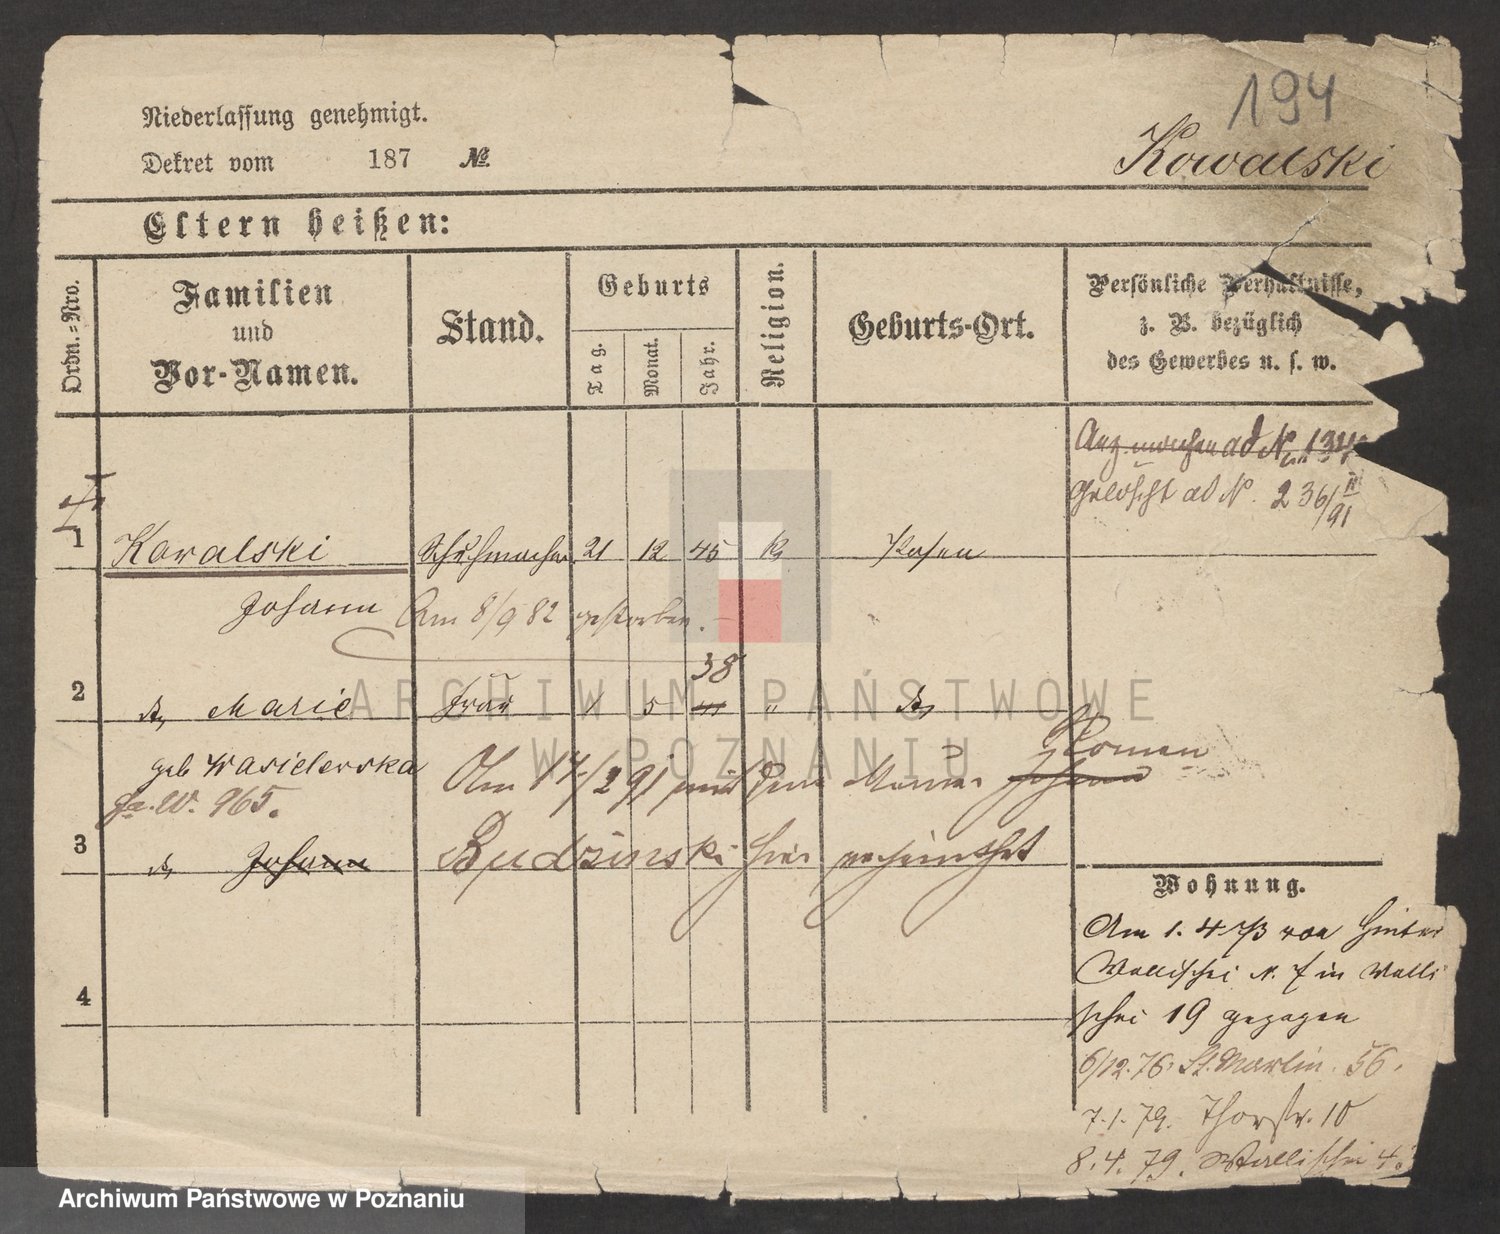 194
Niederlassung genehmigt.
Kowalski
Dekret vom 187 №
Eltern heißen:
Ordn.=Nro.
Familien
und
Vor-Namen.
Stand.
Geburts
Tag.
Monat.
Jahr.
Religion.
Geburts-Ort.
Persönliche Verhältnisse,
z. B. bezüglich
des Gewerbes u. s. w.
ad N 134
Gelöscht ad N. 236/IV 91
1 Kowalski Schuhmacher 21 12 45 k Posen
Johann Am 8/9 82 gestorben.
38
2 Marie Frau 1 5 41 "
geb Wasielewska Am 17/2 91 mit dem Maurer Johann Roman
W. 965.
3 Johann Budzinski hier verheirathet
Wohnung.
Am 1. 4. 73 von Hinter
Wallischei N. 7 in Walli
schei 19 gezogen
4
6/12. 76. St. Martin. 56.
7. 1. 79. Thorstr. 10
8. 4. 79. Wallischei 4.
ARCHIWUM PAŃSTWOWE
W POZNANIU
Archiwum Państwowe w Poznaniu